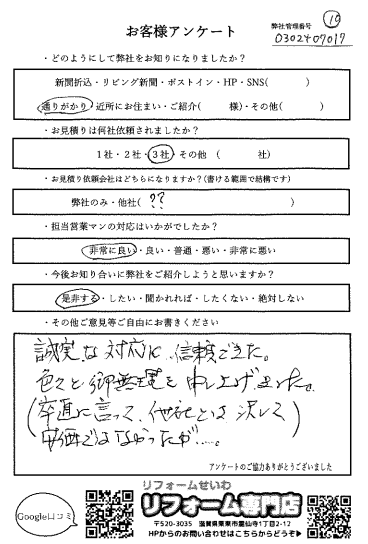 お客様アンケート
弊社管理番号
⑲
0302407017
・どのようにして弊社をお知りになりましたか？
新聞折込・リビング新聞・ポストイン・HP・SNS( )
通りがかり・近所にお住まい・ご紹介( 様)・その他( )
・お見積りは何社依頼されましたか？
1社・2社・3社・その他 ( 社)
・お見積り依頼会社はどちらになりますか？(書ける範囲で結構です)
弊社のみ・他社( ?? )
・担当営業マンの対応はいかがでしたか？
非常に良い・良い・普通・悪い・非常に悪い
・今後お知り合いに弊社をご紹介しようと思いますか？
是非する・したい・聞かれれば・したくない・絶対しない
・その他ご意見等ご自由にお書きください
誠実な対応に、信頼できた。
色々と御無理を申し上げました。
(卒直に言って、他社とは決して
安価ではなかったが…。)
アンケートのご協力ありがとうございました
Google口コミ
リフォームせいわ
リフォーム専門店
〒520-3035 滋賀県栗東市霊仙寺1丁目2-12
HPからのお問い合わせはこちらからどうぞ▶